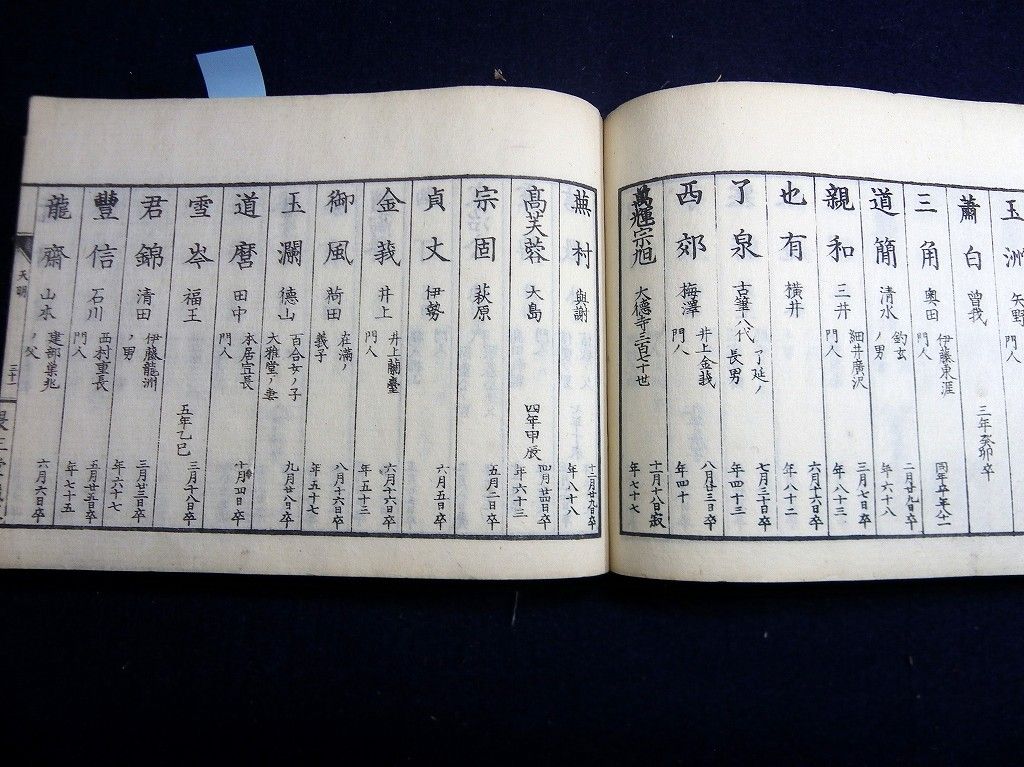 玉洲 矢野 門人
蕭白 曽我 三年癸卯卒
三角 奥田 伊藤東涯門人 同年卒年八十一
道簡 清水 釣玄ノ男 二月廿九日卒年六十八
親和 三井 細井廣沢門人 三月七日卒年八十三
也有 横井 六月十六日卒年八十二
了泉 古筆八代 了延ノ長男 七月三十日卒年四十三
西郊 梅澤 井上金峩門人 八月廿三日卒年四十
萬輝宗旭 大德寺三百七十世 十二月十八日寂年七十七
蕪村 與謝 十二月廿九日卒年八十八
高芙蓉 大島 四年甲辰 四月廿四日卒年六十三
宗固 萩原 五月二日卒
貞丈 伊勢 六月五日卒
金峩 井上 井上蘭臺門人 六月十六日卒年五十三
御風 荷田 在滿ノ義子 八月十六日卒年五十七
玉瀾 德山 百合女ノ子大雅堂ノ妻 九月廿八日卒
道麿 田中 本居宣長門人 十月四日卒
雪岑 福王 五年乙巳 三月十八日卒
君錦 清田 伊藤龍洲ノ男 三月廿三日卒年六十七
豐信 石川 西村重長門人 五月廿五日卒年七十五
龍齋 山本 建部巢兆ノ父 六月六日卒
天明
三十二